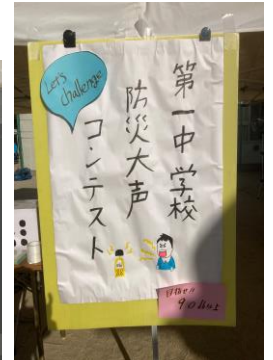 Let's
challenge
第一中学校
防災大声
コンテスト